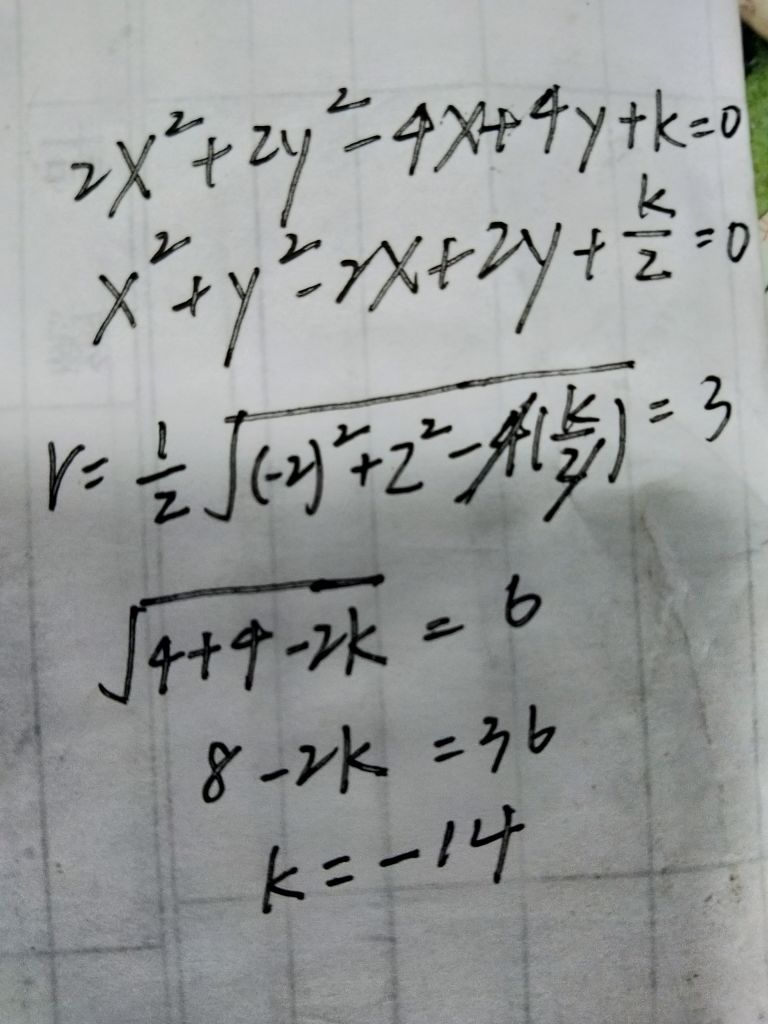 2x²+2y²-4x+4y+k=0
x²+y²-2x+2y+k/2=0
r=1/2√((-2)²+2²-4(k/2))=3
√(4+4-2k)=6
8-2k=36
k=-14